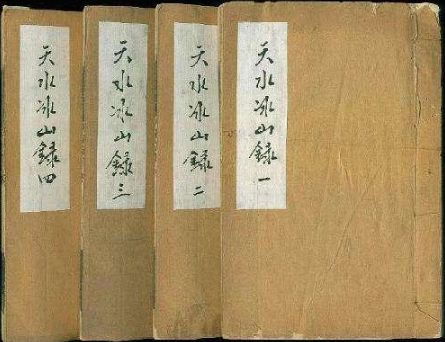 天水冰山録一
天水冰山録二
天水冰山録三
天水冰山録四